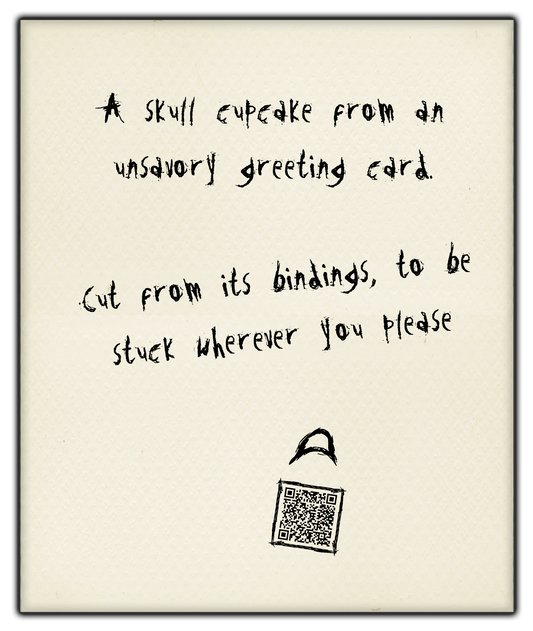 A skull cupcake from an
unsavory greeting card.
Cut from its bindings, to be
stuck wherever you please